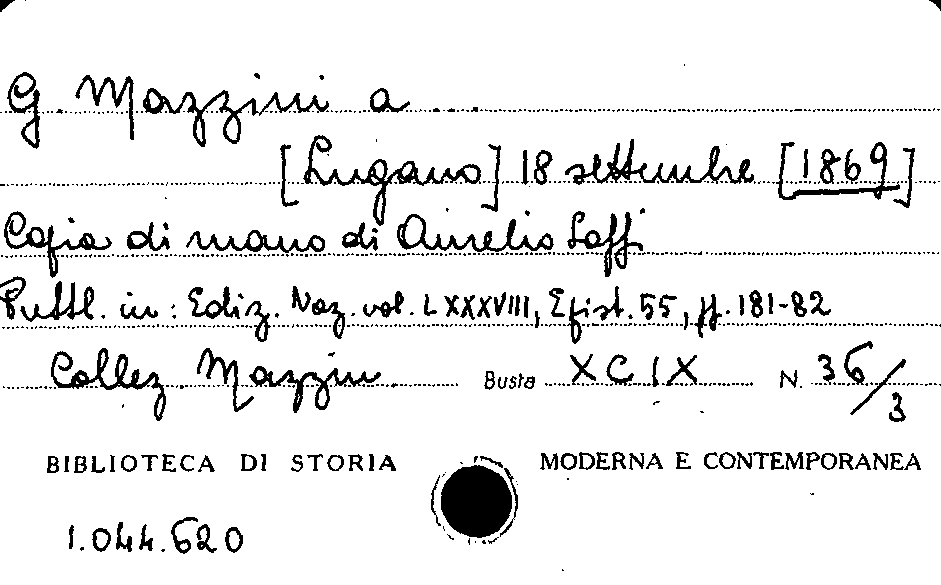 G. Mazzini a ...
[Lugano] 18 settembre [1869]
Copia di mano di Aurelio Saffi
Pubbl. in: Ediz. Naz. vol. LXXXVIII, Epist. 55, pp. 181-82
Collez. Mazzini Busta XCIX N. 36/3
BIBLIOTECA DI STORIA MODERNA E CONTEMPORANEA
1.044.620